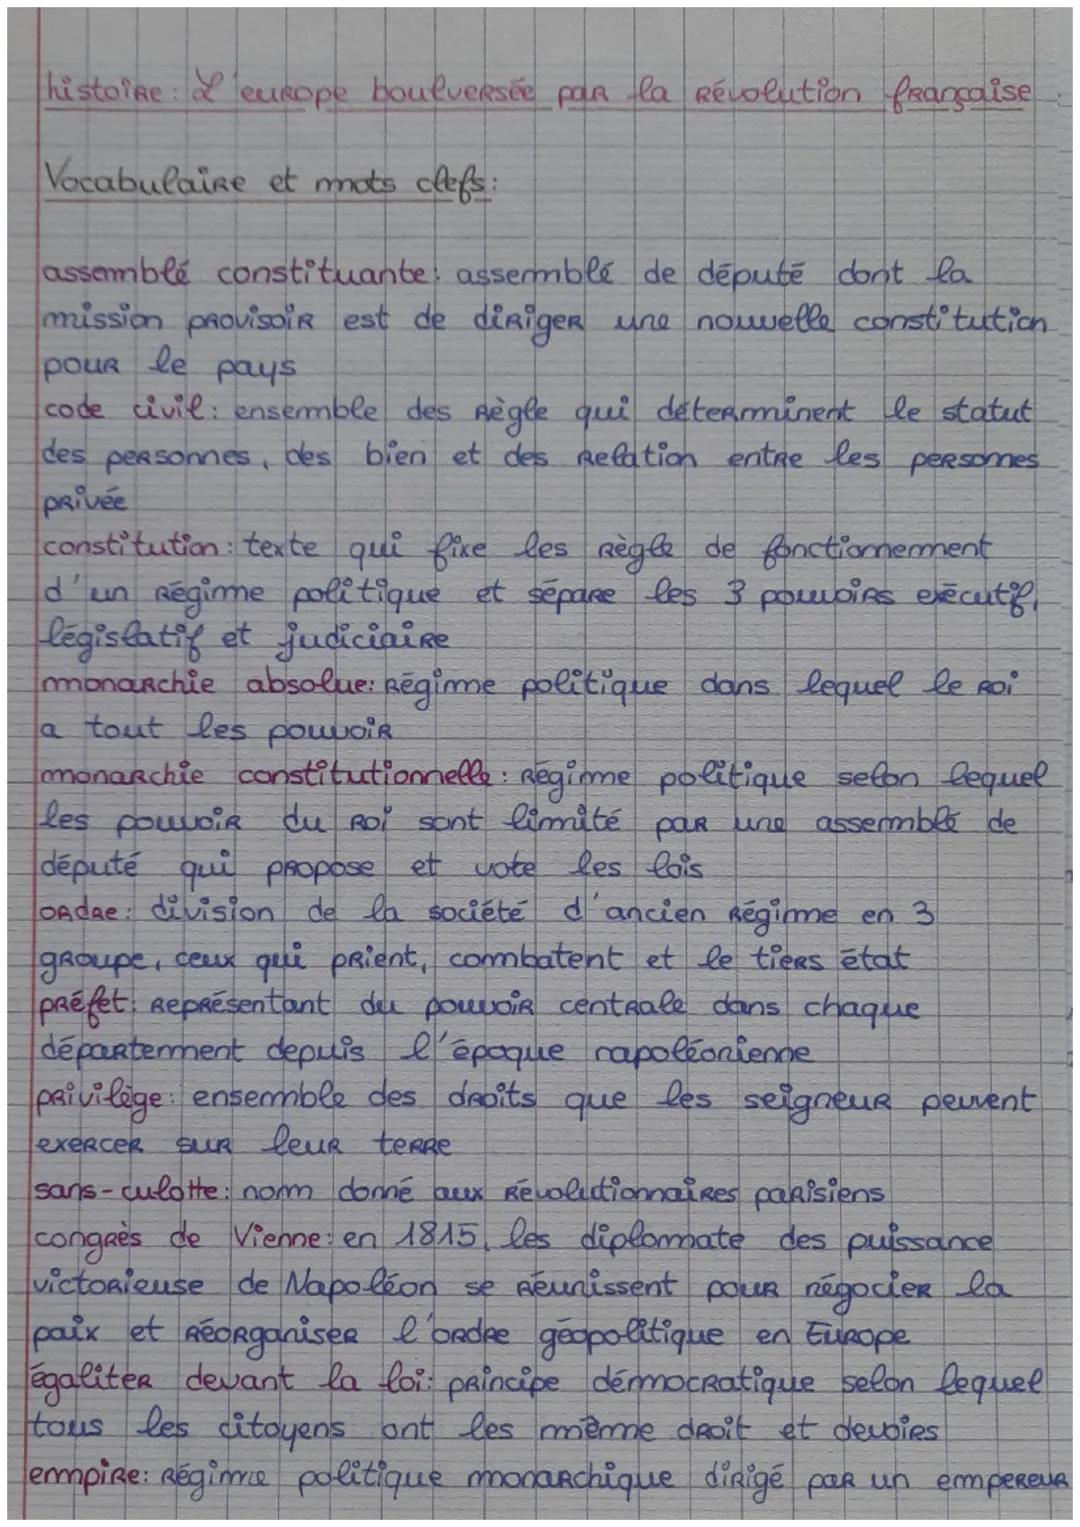 histoire: L'europe boulversée par la révolution française
Vocabulaire et mots clefs:
assemblé constituante: assemblé de député dont la
mission provisoir est de diriger une nouvelle constitution
pour le pays
code civil: ensemble des règle qui déterminent le statut
des personnes, des bien et des relation entre les personnes
privée
constitution: texte qui fixe les règle de fonctionnement
d'un régime politique et sépare les 3 pouvoirs exécutif,
législatif et judiciaire
monarchie absolue: régime politique dans lequel le roi
a tout les pouvoir
monarchie constitutionnelle: régime politique selon lequel
les pouvoir du roi sont limité par une assemblé de
député qui propose et vote les lois
ordre: division de la société d'ancien régime en 3
groupe, ceux qui prient, combatent et le tiers état
préfet: représentant du pouvoir centrale dans chaque
département depuis l'époque napoléonienne
privilège: ensemble des droits que les seigneur peuvent
exercer sur leur terre
sans-culotte: nom donné aux révolutionnaires parisiens
congrès de Vienne: en 1815, les diplomate des puissance
victorieuse de Napoléon se réunissent pour négocier la
paix et réorganiser l'ordre géopolitique en Europe
égaliter devant la loi: principe démocratique selon lequel
tous les citoyens ont les même droit et devoirs
empire: régime politique monarchique dirigé par un empereur